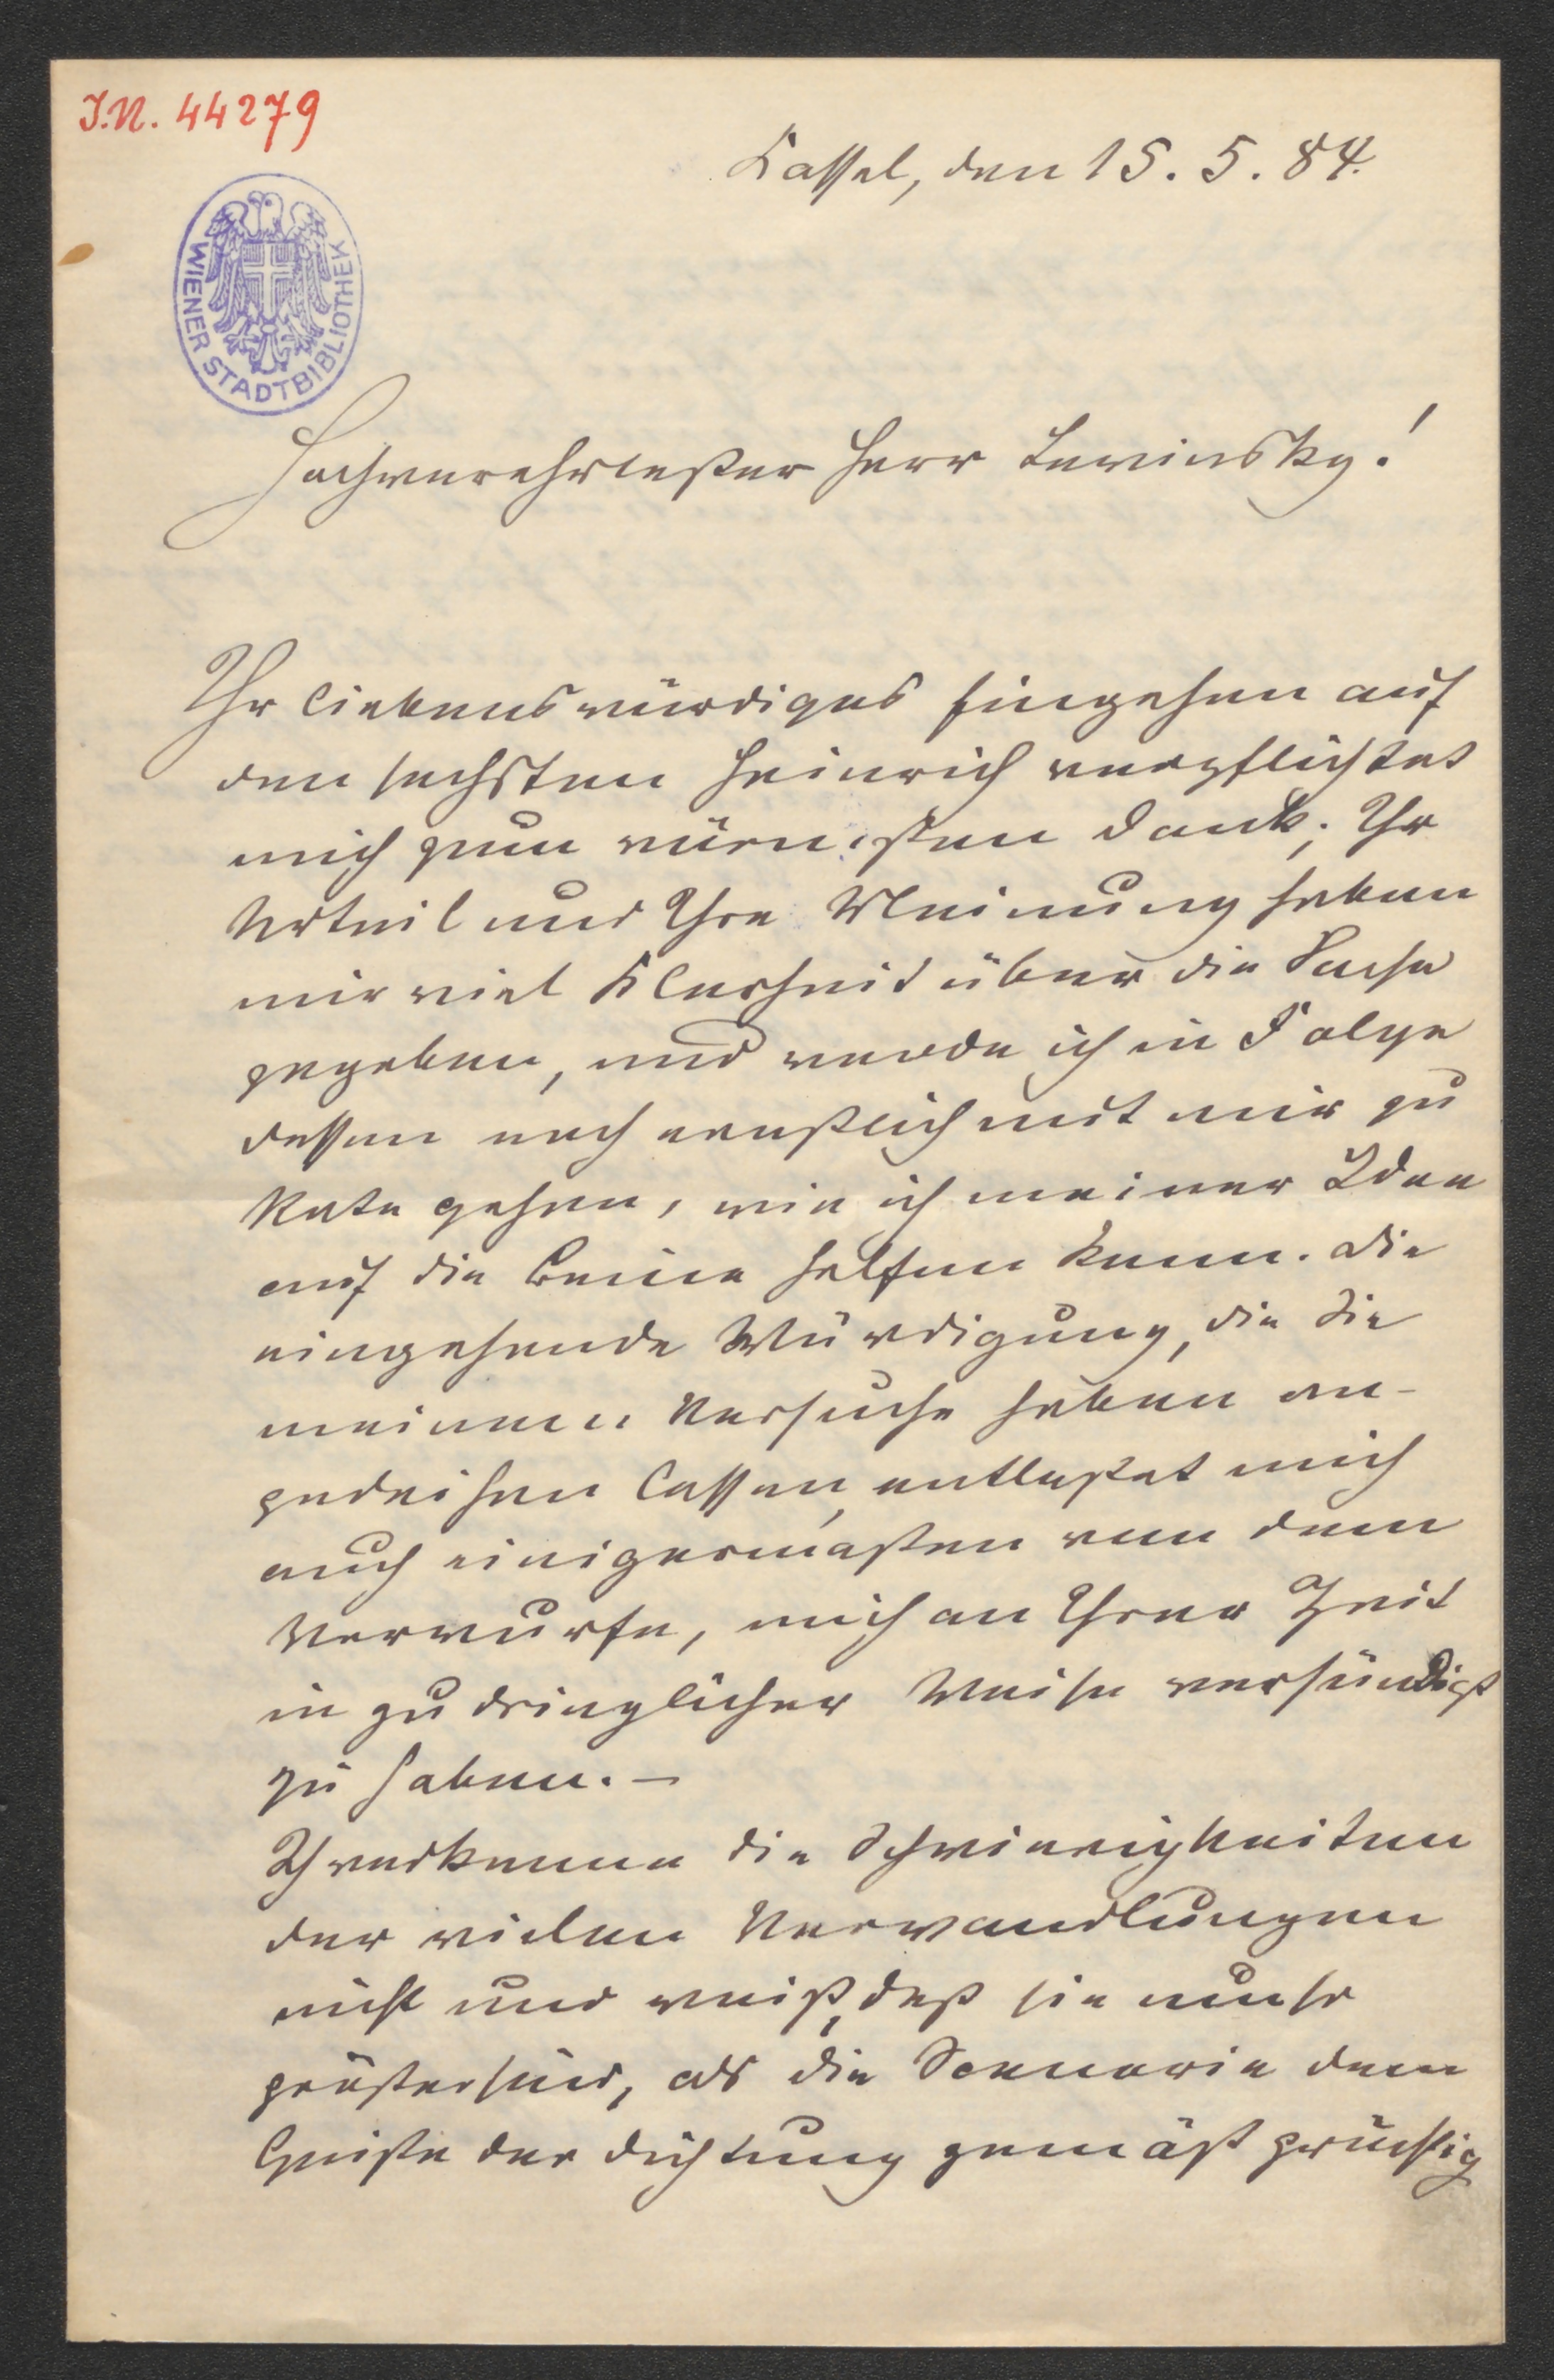 I.N. 44279
Kassel, den 15. 5. 84.
WIENER STADTBIBLIOTHEK
Hochverehrtester Herr Lewinsky!
Ihr liebenswürdiges Eingehen auf
den sechsten Heinrich verpflichtet
mich zum wärmsten Dank; Ihr
Urteil und Ihre Meinung haben
mir viel Klarheit über die Sache
gegeben, und werde ich in Folge
dessen noch ernstlich mit mir zu
Rate gehen, wie ich meiner Idee
auf die Beine helfen kann. Die
eingehende Würdigung, die Sie
meinem Versuche haben an-
gedeihen lassen, entlastet mich
auch einigermaßen von dem
Vorwurfe, mich an Ihrer Zeit
in zudringlicher Weise versündigt
zu haben. –
Ich verkenne die Schwierigkeiten
der vielen Verwandlungen
nicht und weiß, daß sie umso
größer sind, als die Scenerie dem
Geiste der Dichtung gemäß prächtig